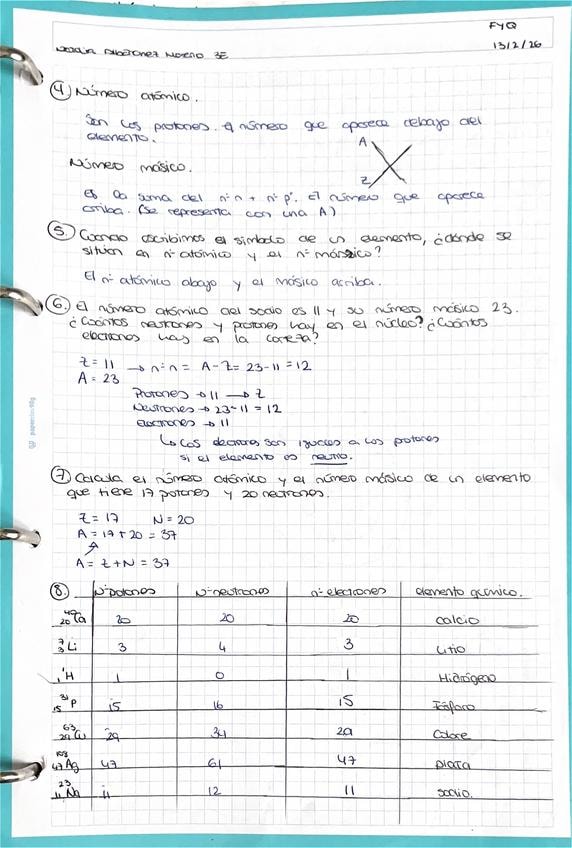 FYQ
13/2/26
Moreno 3E
④ Número atómico.
Son los protones. El número que aparece debajo del
elemento.
A
Número másico.
Z
Es la suma del nº n + nº p⁺. El número que aparece
arriba. (Se representa con una A)
⑤ Cuando escribimos el símbolo de un elemento, ¿dónde se
sitúan en nº atómico y el nº másico?
El nº atómico abajo y el másico arriba.
⑥ El número atómico del sodio es 11 y su número másico 23.
¿Cuántos neutrones y protones hay en el núcleo? ¿Cuántos
electrones hay en la corteza?
Z = 11 → nº n = A - Z = 23 - 11 = 12
A = 23
Protones → 11 → Z
Neutrones → 23 - 11 = 12
electrones → 11
↳ Los electrones son iguales a los protones
si el elemento es neutro.
⑦ Calcula el número atómico y el número másico de un elemento
que tiene 17 protones y 20 neutrones.
Z = 17 N = 20
A = 17 + 20 = 37
A = Z + N = 37
⑧ Nº protones Nº neutrones nº electrones elemento químico.
⁴⁰₂₀Ca 20 20 20 calcio
⁷₃Li 3 4 3 Litio
¹₁H 1 0 1 Hidrógeno
³¹₁₅P 15 16 15 Fósforo
⁶³₂₉Cu 29 34 29 Cobre
¹⁰⁸₄₇Ag 47 61 47 plata
²³₁₁Na 11 12 11 sodio.